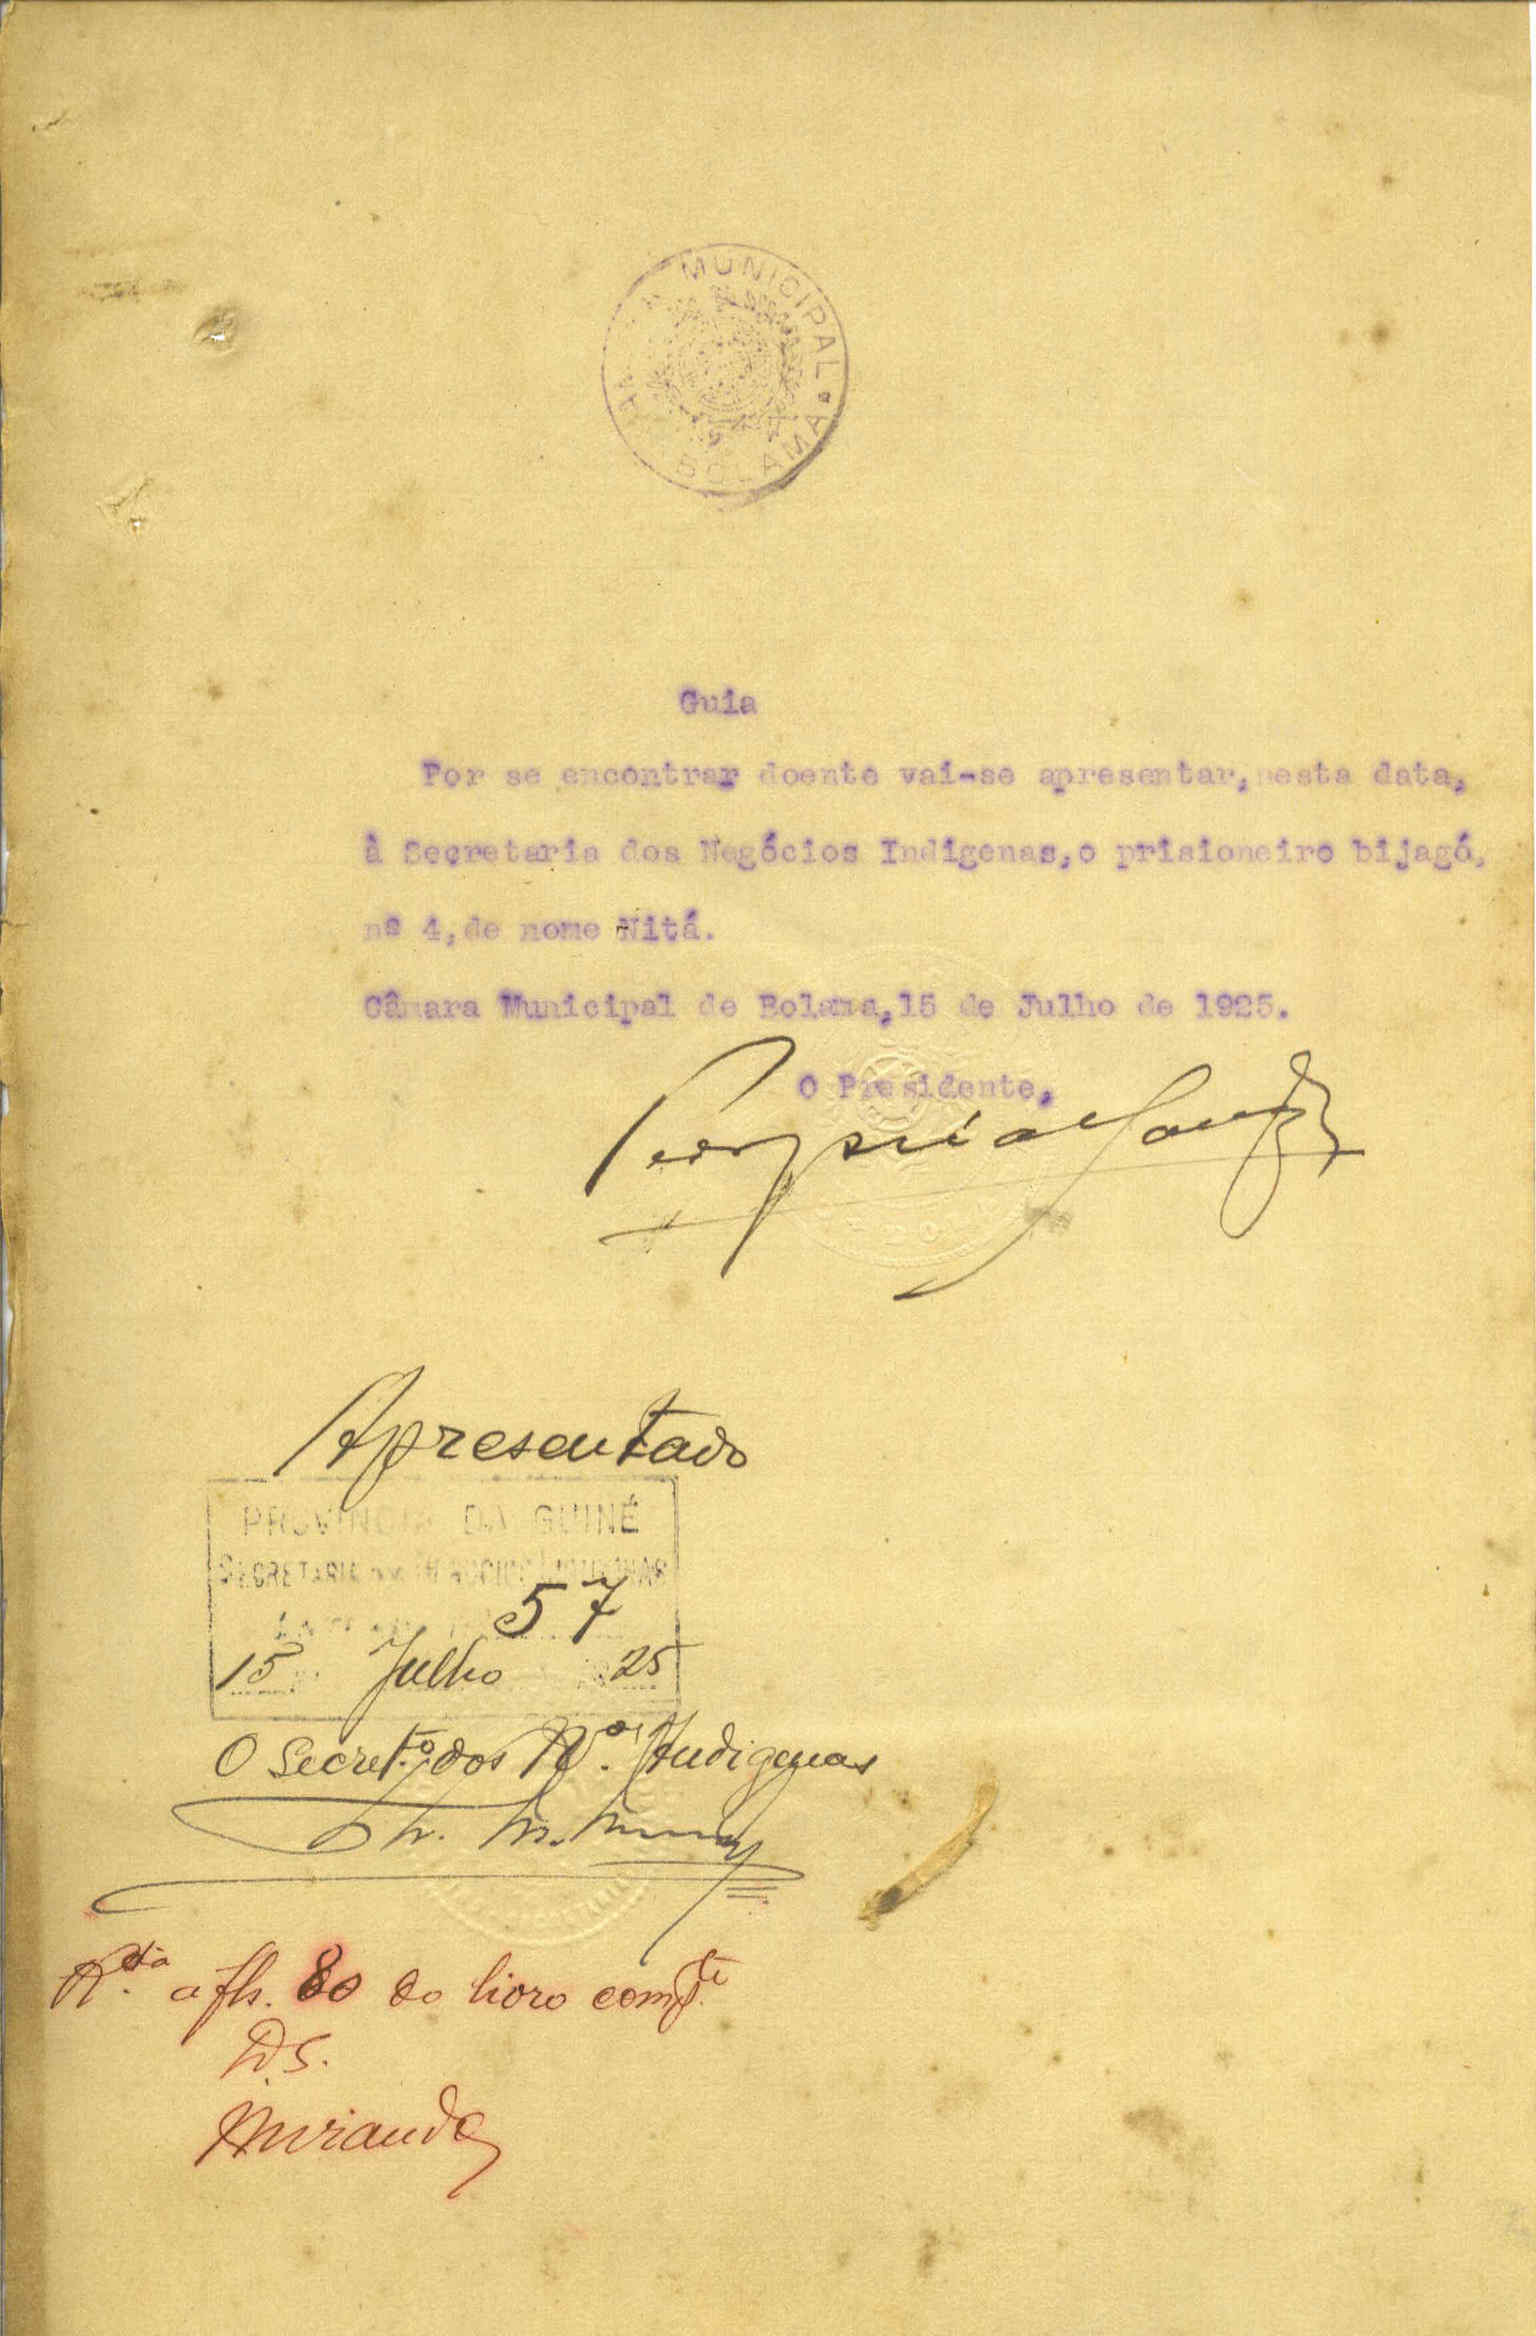 MUNICIPAL
BOLAMA
Guia
Por se encontrar doente vai-se apresentar, nesta data,
à Secretaria dos Negócios Indigenas, o prisioneiro bijagó,
nº 4, de nome Nitá.
Câmara Municipal de Bolama, 15 de Julho de 1925.
O Presidente,
Apresentado
PROVINCIA DA GUINÉ
SECRETARIA DOS NEGOCIOS INDIGENAS
57
15 Julho 25
O Secret.º dos N.os Indigenas
R.da a fls. 80 do livro comp.te
D.S.
Miranda